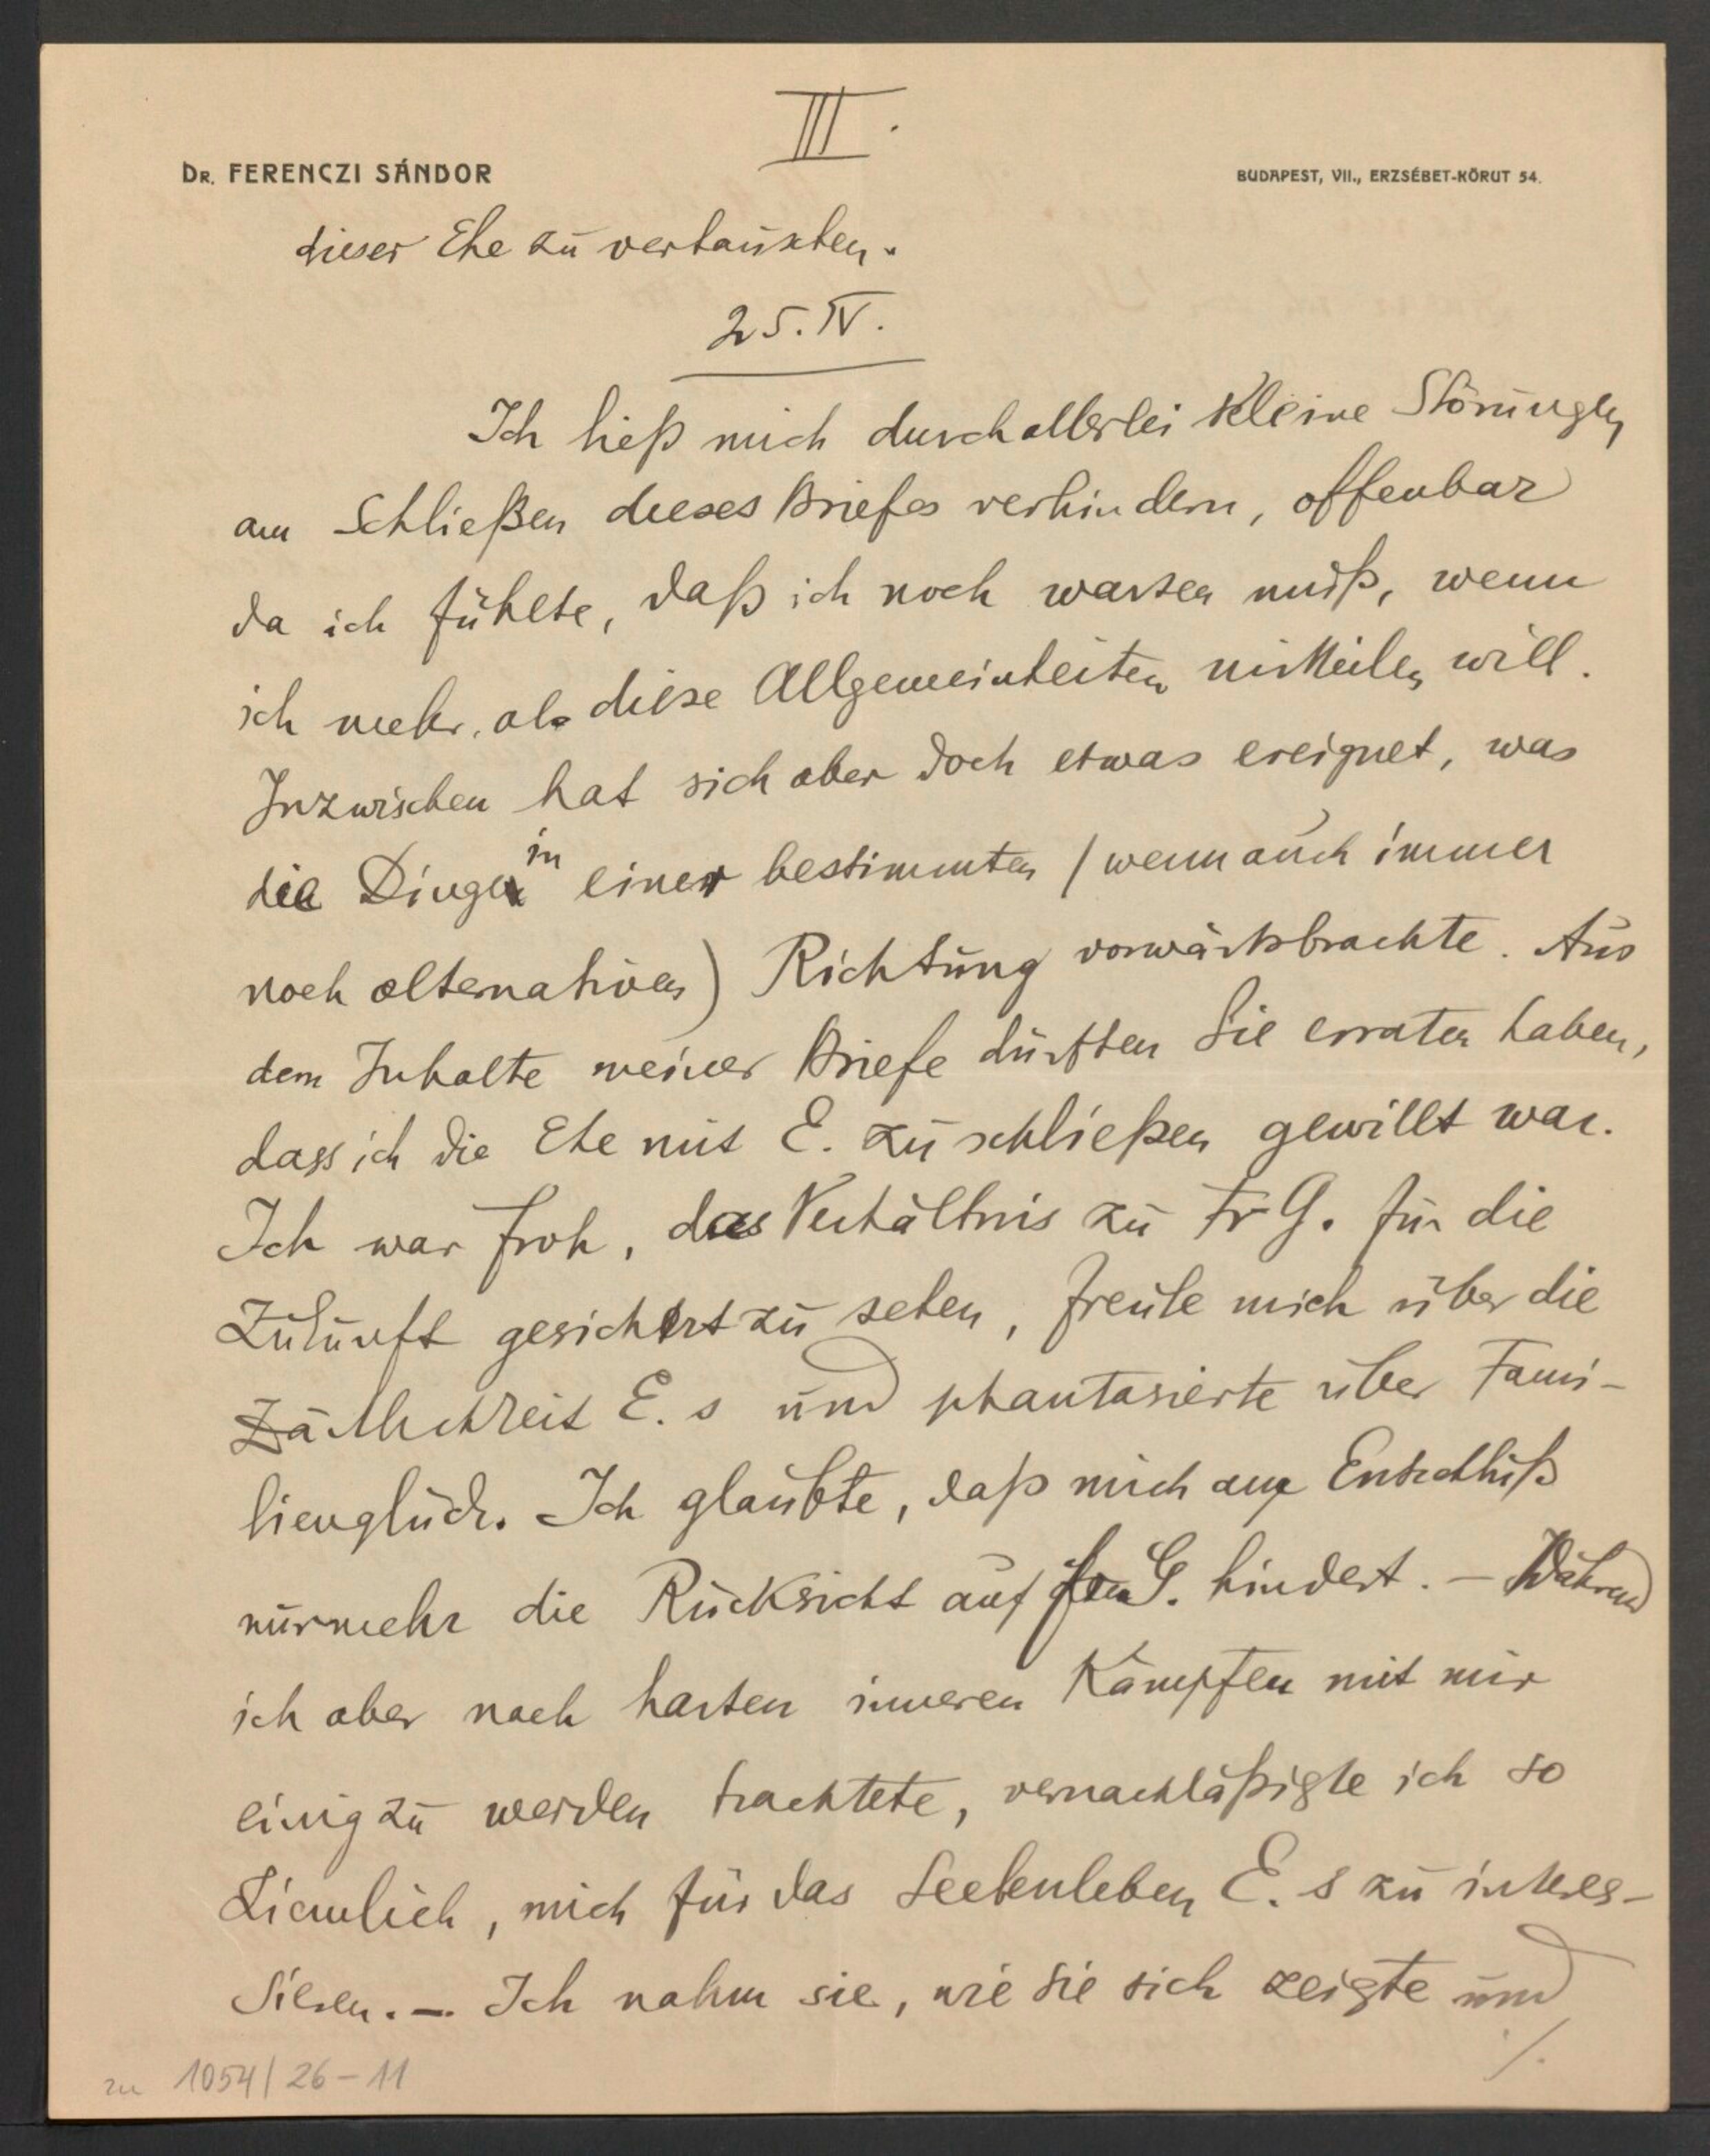 III.
DR. FERENCZI SÁNDOR
BUDAPEST, VII., ERZSÉBET-KÖRUT 54.
dieser Ehe zu vertauschen.
25. IV.
Ich ließ mich durch allerlei kleine Störungen
am Schließen dieses Briefes verhindern, offenbar
da ich fühlte, daß ich noch warten muß, wenn
ich mehr, als diese Allgemeinheiten mitteilen will.
Inzwischen hat sich aber doch etwas ereignet, was
die Dinge in einer bestimmten (wenn auch immer
noch alternativen) Richtung vorwärtsbrachte. Aus
dem Inhalte meiner Briefe dürften Sie erraten haben,
dass ich die Ehe mit E. zu schließen gewillt war.
Ich war froh, das Verhältnis zu Fr G. für die
Zukunft gesichert zu sehen, freute mich über die
Zärtlichkeit E. s und phantasierte über Fami-
lienglück. Ich glaubte, daß mich am Entschluß
nurmehr die Rücksicht auf Frau G. hindert. – Während
ich aber nach harten inneren Kämpfen mit mir
einig zu werden trachtete, vernachläßigte ich so
ziemlich, mich für das Seelenleben E. s zu interes-
sieren. – Ich nahm sie, wie sie sich zeigte und
./.
zu 1054/26-11